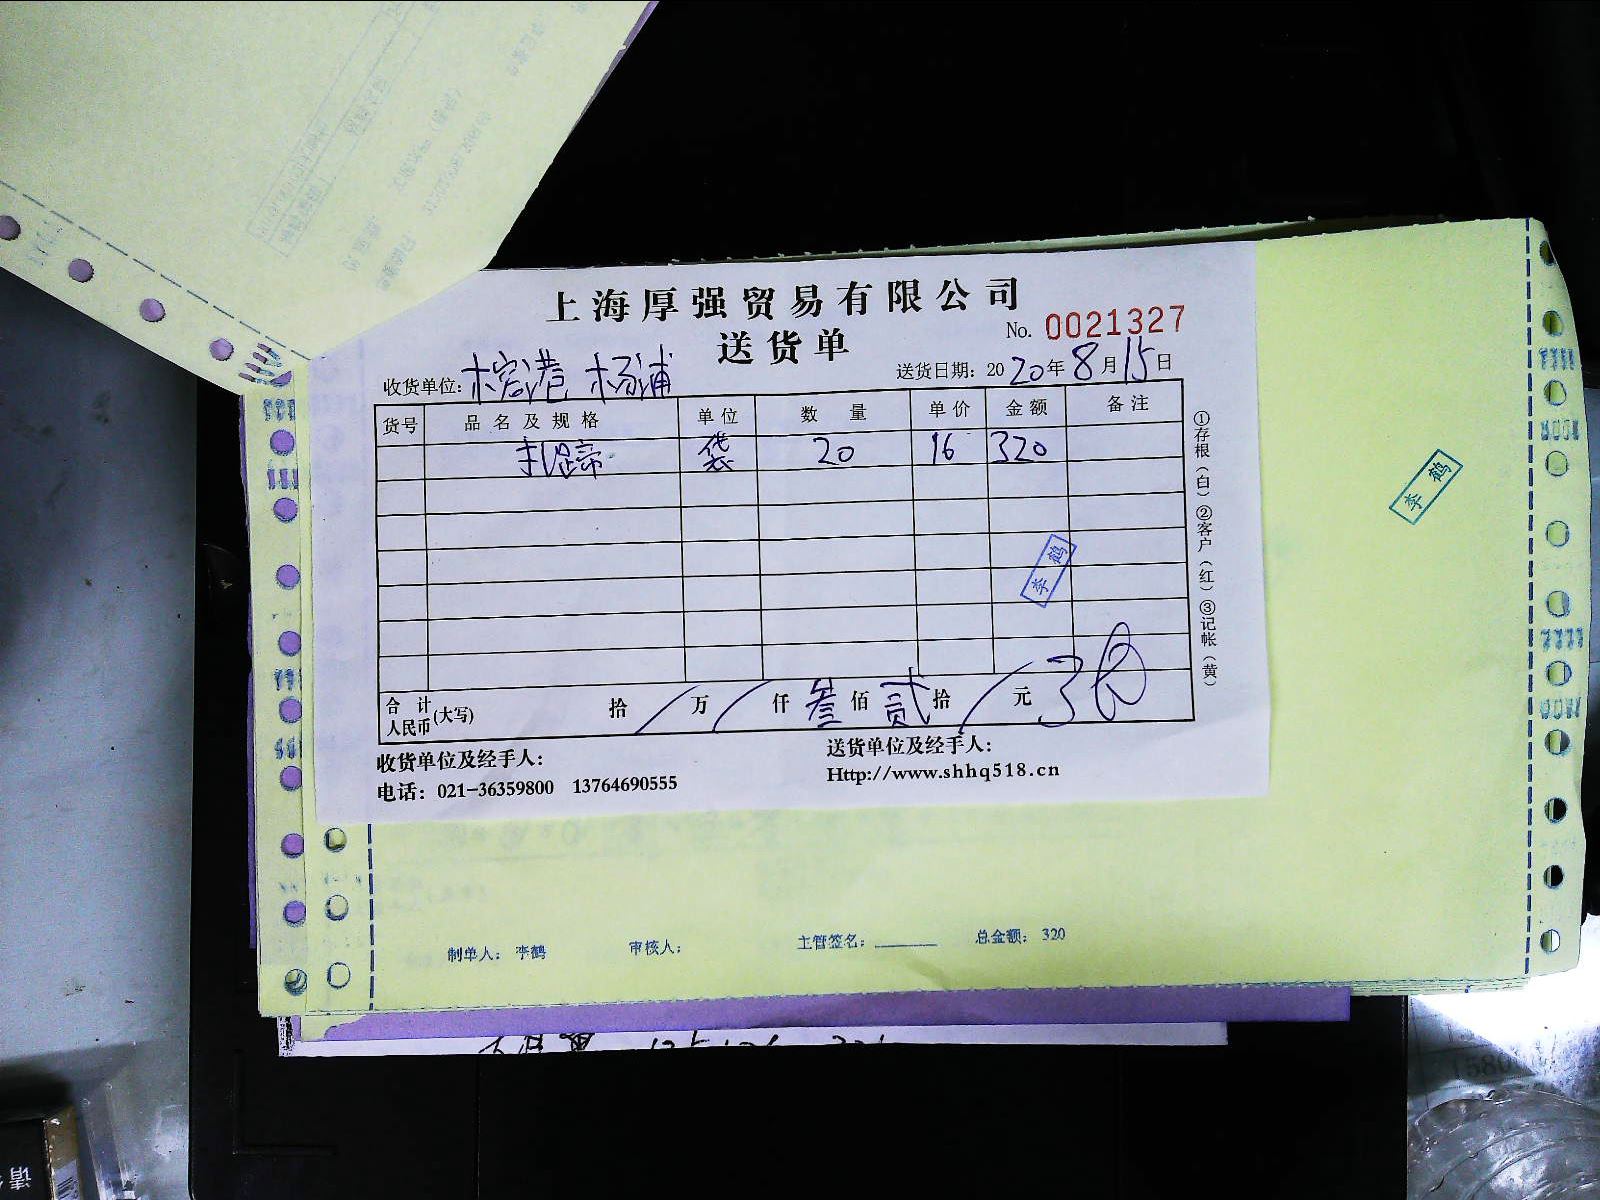 上海厚强贸易有限公司
送货单
No. 0021327
收货单位: 榕港 杨浦
送货日期: 2020年8月15日
货号 品名及规格 单位 数量 单价 金额 备注
扎蹄 袋 20 16 320
李鹤
李鹤
①存根（白）②客户（红）③记帐（黄）
合计人民币(大写) 拾 / 万 / 仟 叁 佰 贰 拾 / 元 320
收货单位及经手人:
送货单位及经手人:
电话: 021-36359800 13764690555
Http://www.shhq518.cn
制单人: 李鹤 审核人: 主管签名: 总金额: 320
请